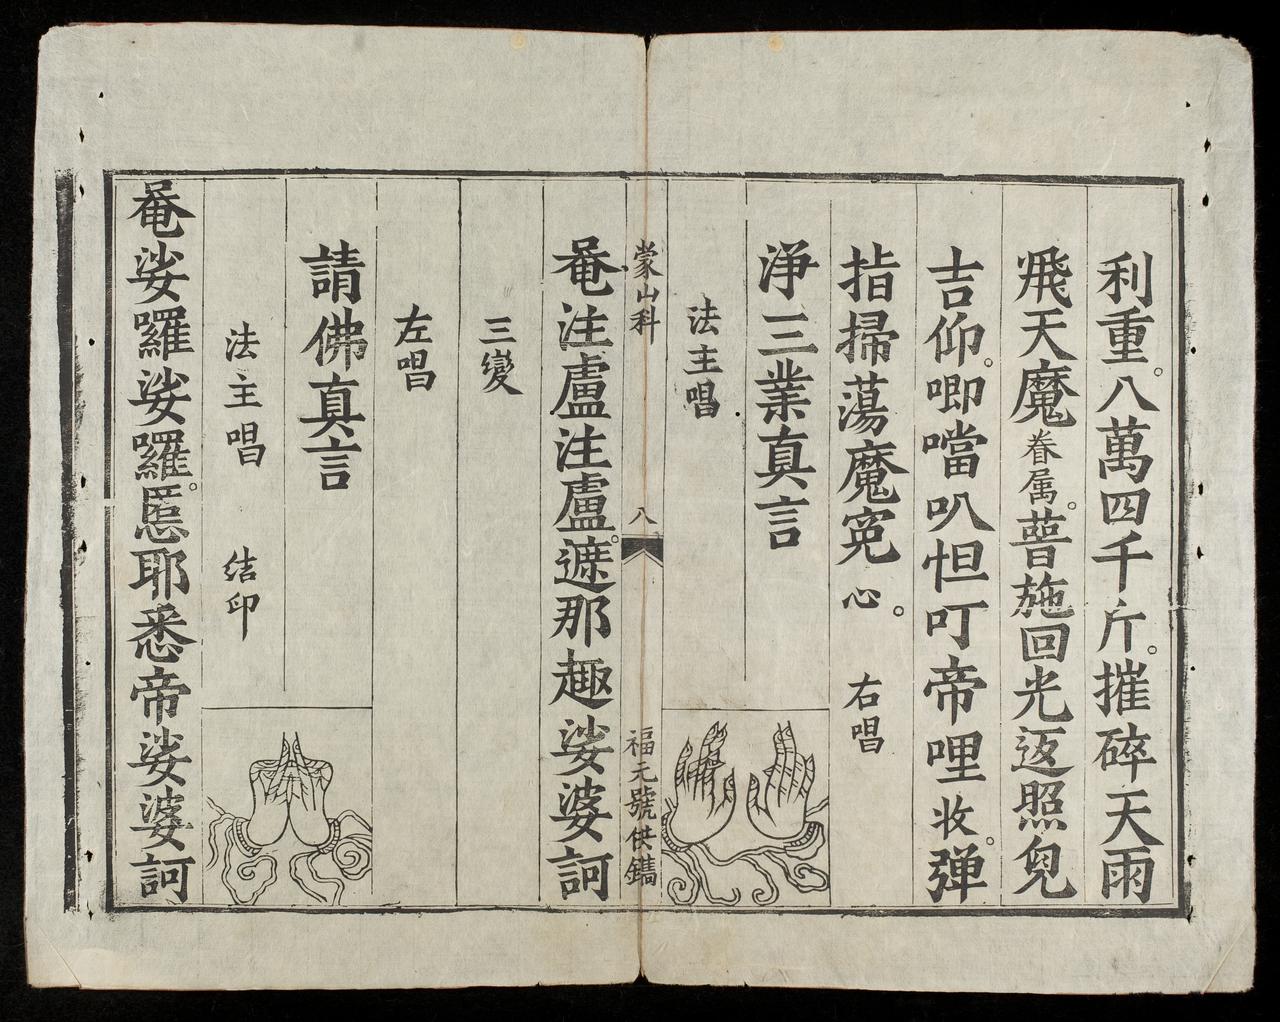 利重。八萬四千斤。摧碎天雨
飛天魔眷属。普施回光返照皃
吉仰。唧噹叭怛叮帝哩收。弹
指掃蕩魔寃心。 右唱
浄三業真言
法主唱
蒙山科 八 福元號供鐫
唵注盧注盧。遮那趣娑婆訶
三變
左唱
請佛真言
法主唱 结印
唵娑囉娑囉。慝耶悉帝娑婆訶